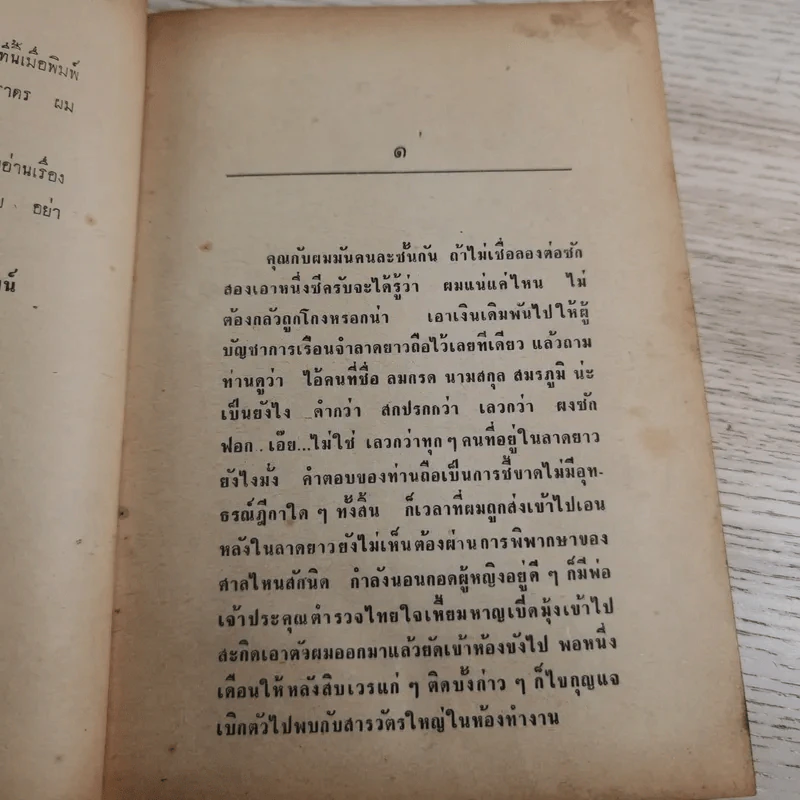 ที่นี้เมื่อพิมพ์
ผม
อ่านเรื่อง
อย่า
๑
คุณกับผมมันคนละชั้นกัน ถ้าไม่เชื่อลองต่อซัก
สองเอาหนึ่งซีครับจะได้รู้ว่า ผมแน่แค่ไหน ไม่
ต้องกลัวถูกโกงหรอกน่า เอาเงินเดิมพันไปให้ผู้
บัญชาการเรือนจำลาดยาวถือไว้เลยทีเดียว แล้วถาม
ท่านดูว่า ไอ้คนที่ชื่อ ลมกรด นามสกุล สมรภูมิ น่ะ
เป็นยังไง ดำกว่า สกปรกกว่า เลวกว่า ผงซัก
ฟอก . เอ๊ย...ไม่ใช่ เลวกว่าทุก ๆ คนที่อยู่ในลาดยาว
ยังไงมั่ง คำตอบของท่านถือเป็นการชี้ขาดไม่มีอุท-
ธรณ์ฎีกาใด ๆ ทั้งสิ้น ก็เวลาที่ผมถูกส่งเข้าไปเอน
หลังในลาดยาวยังไม่เห็นต้องผ่านการพิพากษาของ
ศาลไหนสักนิด กำลังนอนกอดผู้หญิงอยู่ดี ๆ ก็มีพ่อ
เจ้าประคุณตำรวจไทยใจเหี้ยมหาญเบิดมุ้งเข้าไป
สะกิดเอาตัวผมออกมาแล้วยัดเข้าห้องขังไป พอหนึ่ง
เดือนให้หลังสิบเวรแก่ ๆ ติดบั้งก่าว ๆ ก็ไขกุญแจ
เบิกตัวไปพบกับสารวัตรใหญ่ในห้องทำงาน